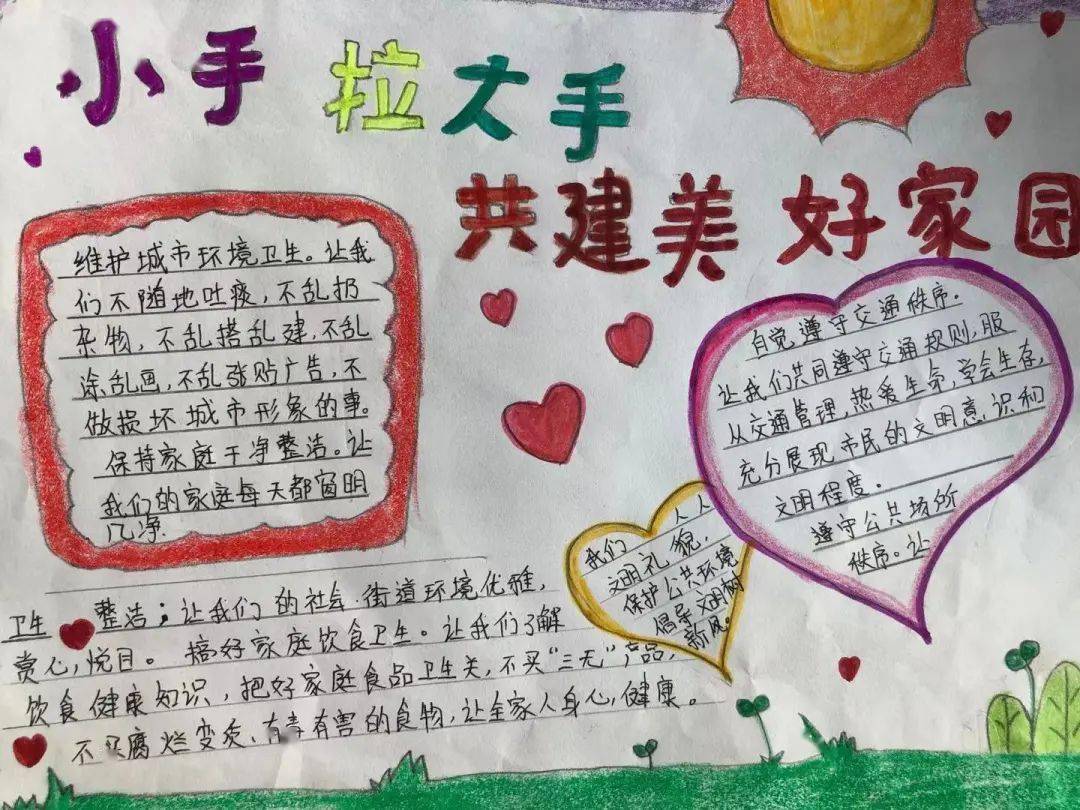 小手拉大手
共建美好家园
维护城市环境卫生。让我
们不随地吐痰，不乱扔
杂物，不乱搭乱建，不乱
涂乱画，不乱张贴广告，不
做损坏城市形象的事。
保持家庭干净整洁。让
我们的家庭每天都窗明
几净
自觉遵守交通秩序.
让我们共同遵守交通规则,服
从交通管理,热爱生命,学会生存,
充分展现市民的文明意识和
文明程度.
遵守公共场所
秩序。让
我们人人
文明礼貌.
保护公共环境
倡导文明树
新风。
卫生整洁；让我们的社会街道环境优雅,
赏心,悦目。搞好家庭饮食卫生。让我们了解
饮食健康知识,把好家庭食品卫生关,不买“三无”产品,
不买腐烂变质、有毒有害的食物,让全家人身心,健康。